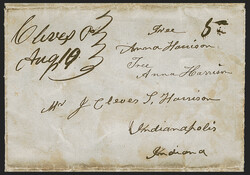 Cleves O
Aug 19
Free 5
Anna Harrison
Free
Anna Harrison
Mr J. Cleves S. Harrison
Indianapolis
Indiana